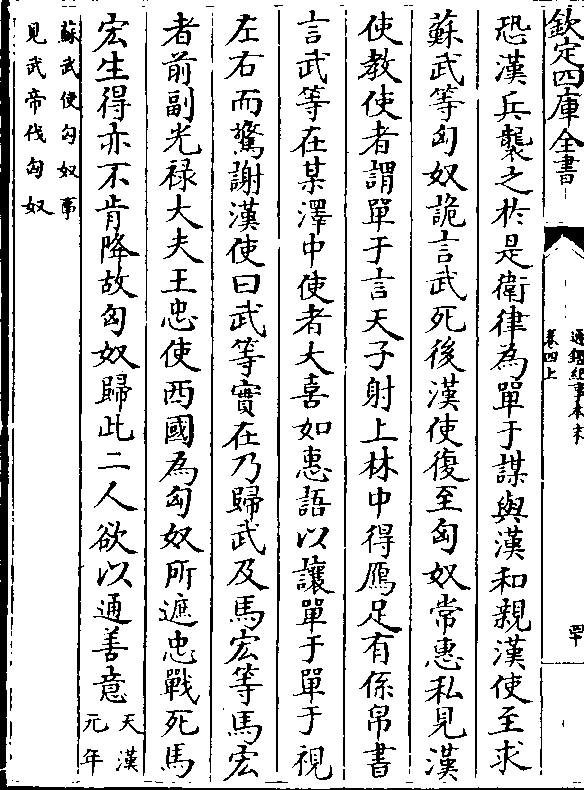 欽定四庫全書
通鑑紀事本末
卷四上
罕
恐漢兵襲之於是衛律為單于謀與漢和親漢使至求
蘇武等匈奴詭言武死後漢使復至匈奴常惠私見漢
使教使者謂單于言天子射上林中得鴈足有係帛書
言武等在某澤中使者大喜如惠語以讓單于單于視
左右而驚謝漢使曰武等實在乃歸武及馬宏等馬宏
者前副光禄大夫王忠使西國為匈奴所遮忠戰死馬
宏生得亦不肯降故匈奴歸此二人欲以通善意天漢
元年
蘇武使匈奴事
見武帝伐匈奴